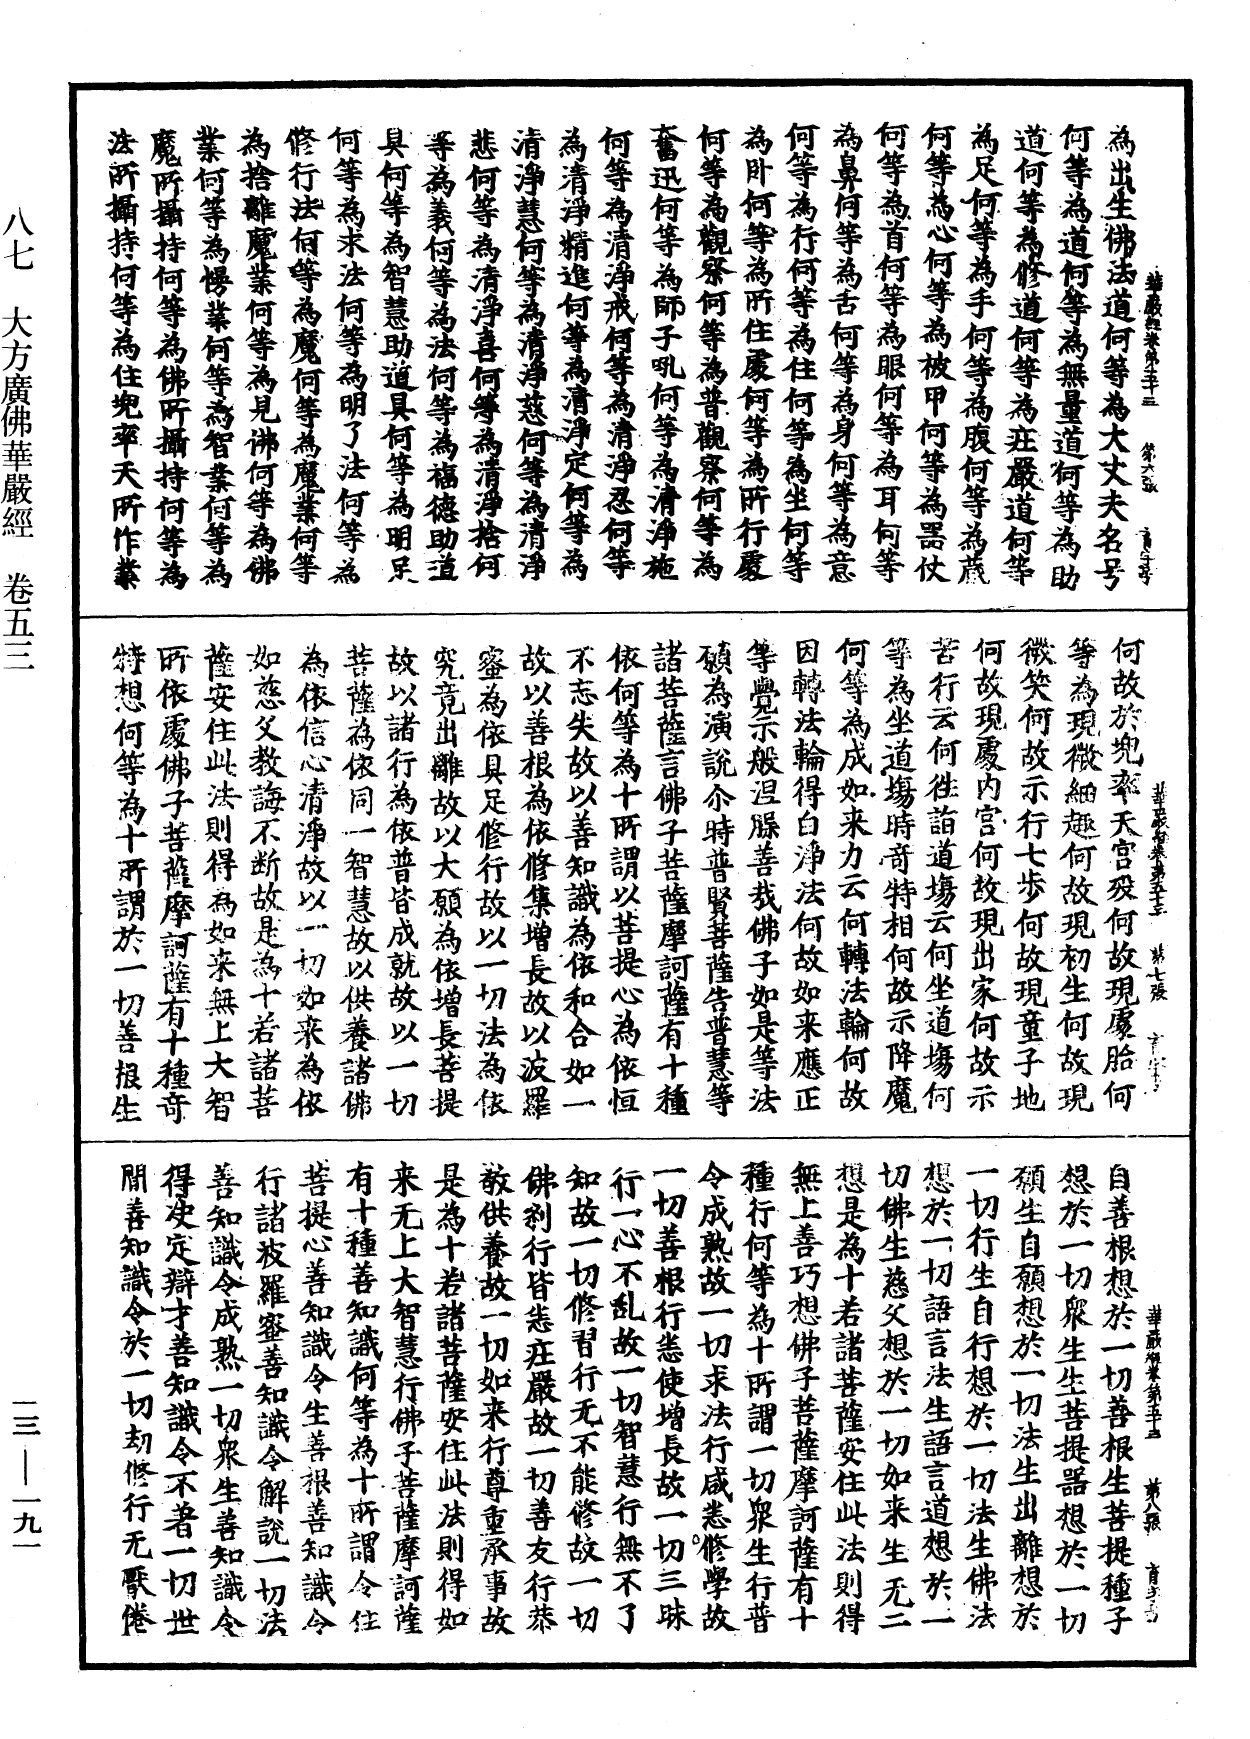 八七　大方廣佛華嚴經　卷五三
一三—一九一
為出生佛法道何等為大丈夫名号
何等為道何等為無量道何等為助
道何等為修道何等為莊嚴道何等
為足何等為手何等為腹何等為藏
何等為心何等為被甲何等為器仗
何等為首何等為眼何等為耳何等
為鼻何等為舌何等為身何等為意
何等為行何等為住何等為坐何等
為卧何等為所住處何等為所行處
何等為觀察何等為普觀察何等為
奮迅何等為師子吼何等為清淨施
何等為清淨戒何等為清淨忍何等
為清淨精進何等為清淨定何等為
清淨慧何等為清淨慈何等為清淨
悲何等為清淨喜何等為清淨捨何
等為義何等為法何等為福德助道
具何等為智慧助道具何等為明足
何等為求法何等為明了法何等為
修行法何等為魔何等為魔業何等
為捨離魔業何等為見佛何等為佛
業何等為慢業何等為智業何等為
魔所攝持何等為佛所攝持何等為
法所攝持何等為住兜率天所作業
何故於兜率天宮歿何故現處胎何
等為現微細趣何故現初生何故現
微笑何故示行七步何故現童子地
何故現處內宮何故現出家何故示
苦行云何往詣道場云何坐道場何
等為坐道場時奇特相何故示降魔
何等為成如来力云何轉法輪何故
因轉法輪得白淨法何故如来應正
等覺示般涅脲善哉佛子如是等法
願為演說尒時普賢菩薩告普慧等
諸菩薩言佛子菩薩摩訶薩有十種
依何等為十所謂以菩提心為依恒
不忘失故以善知識為依和合如一
故以善根為依修集增長故以波羅
蜜為依具足修行故以一切法為依
究竟出離故以大願為依增長菩提
故以諸行為依普皆成就故以一切
菩薩為依同一智慧故以供養諸佛
為依信心清淨故以一切如来為依
如慈父教誨不断故是為十若諸菩
薩安住此法則得為如来無上大智
所依處佛子菩薩摩訶薩有十種奇
特想何等為十所謂於一切善根生
自善根想於一切善根生菩提種子
想於一切眾生生菩提器想於一切
願生自願想於一切法生出離想於
一切行生自行想於一切法生佛法
想於一切語言法生語言道想於一
切佛生慈父想於一切如来生无二
想是為十若諸菩薩安住此法則得
無上善巧想佛子菩薩摩訶薩有十
種行何等為十所謂一切眾生行普
令成熟故一切求法行咸悉修學故
一切善根行悉使增長故一切三昧
行一心不乱故一切智慧行無不了
知故一切修習行无不能修故一切
佛刹行皆悉莊嚴故一切善友行恭
敬供養故一切如来行尊重承事故
是為十若諸菩薩安住此法則得如
来无上大智慧行佛子菩薩摩訶薩
有十種善知識何等為十所謂令住
菩提心善知識令生善根善知識令
行諸波羅蜜善知識令解說一切法
善知識令成熟一切眾生善知識令
得决定辯才善知識令不著一切世
間善知識令於一切劫修行无厭倦